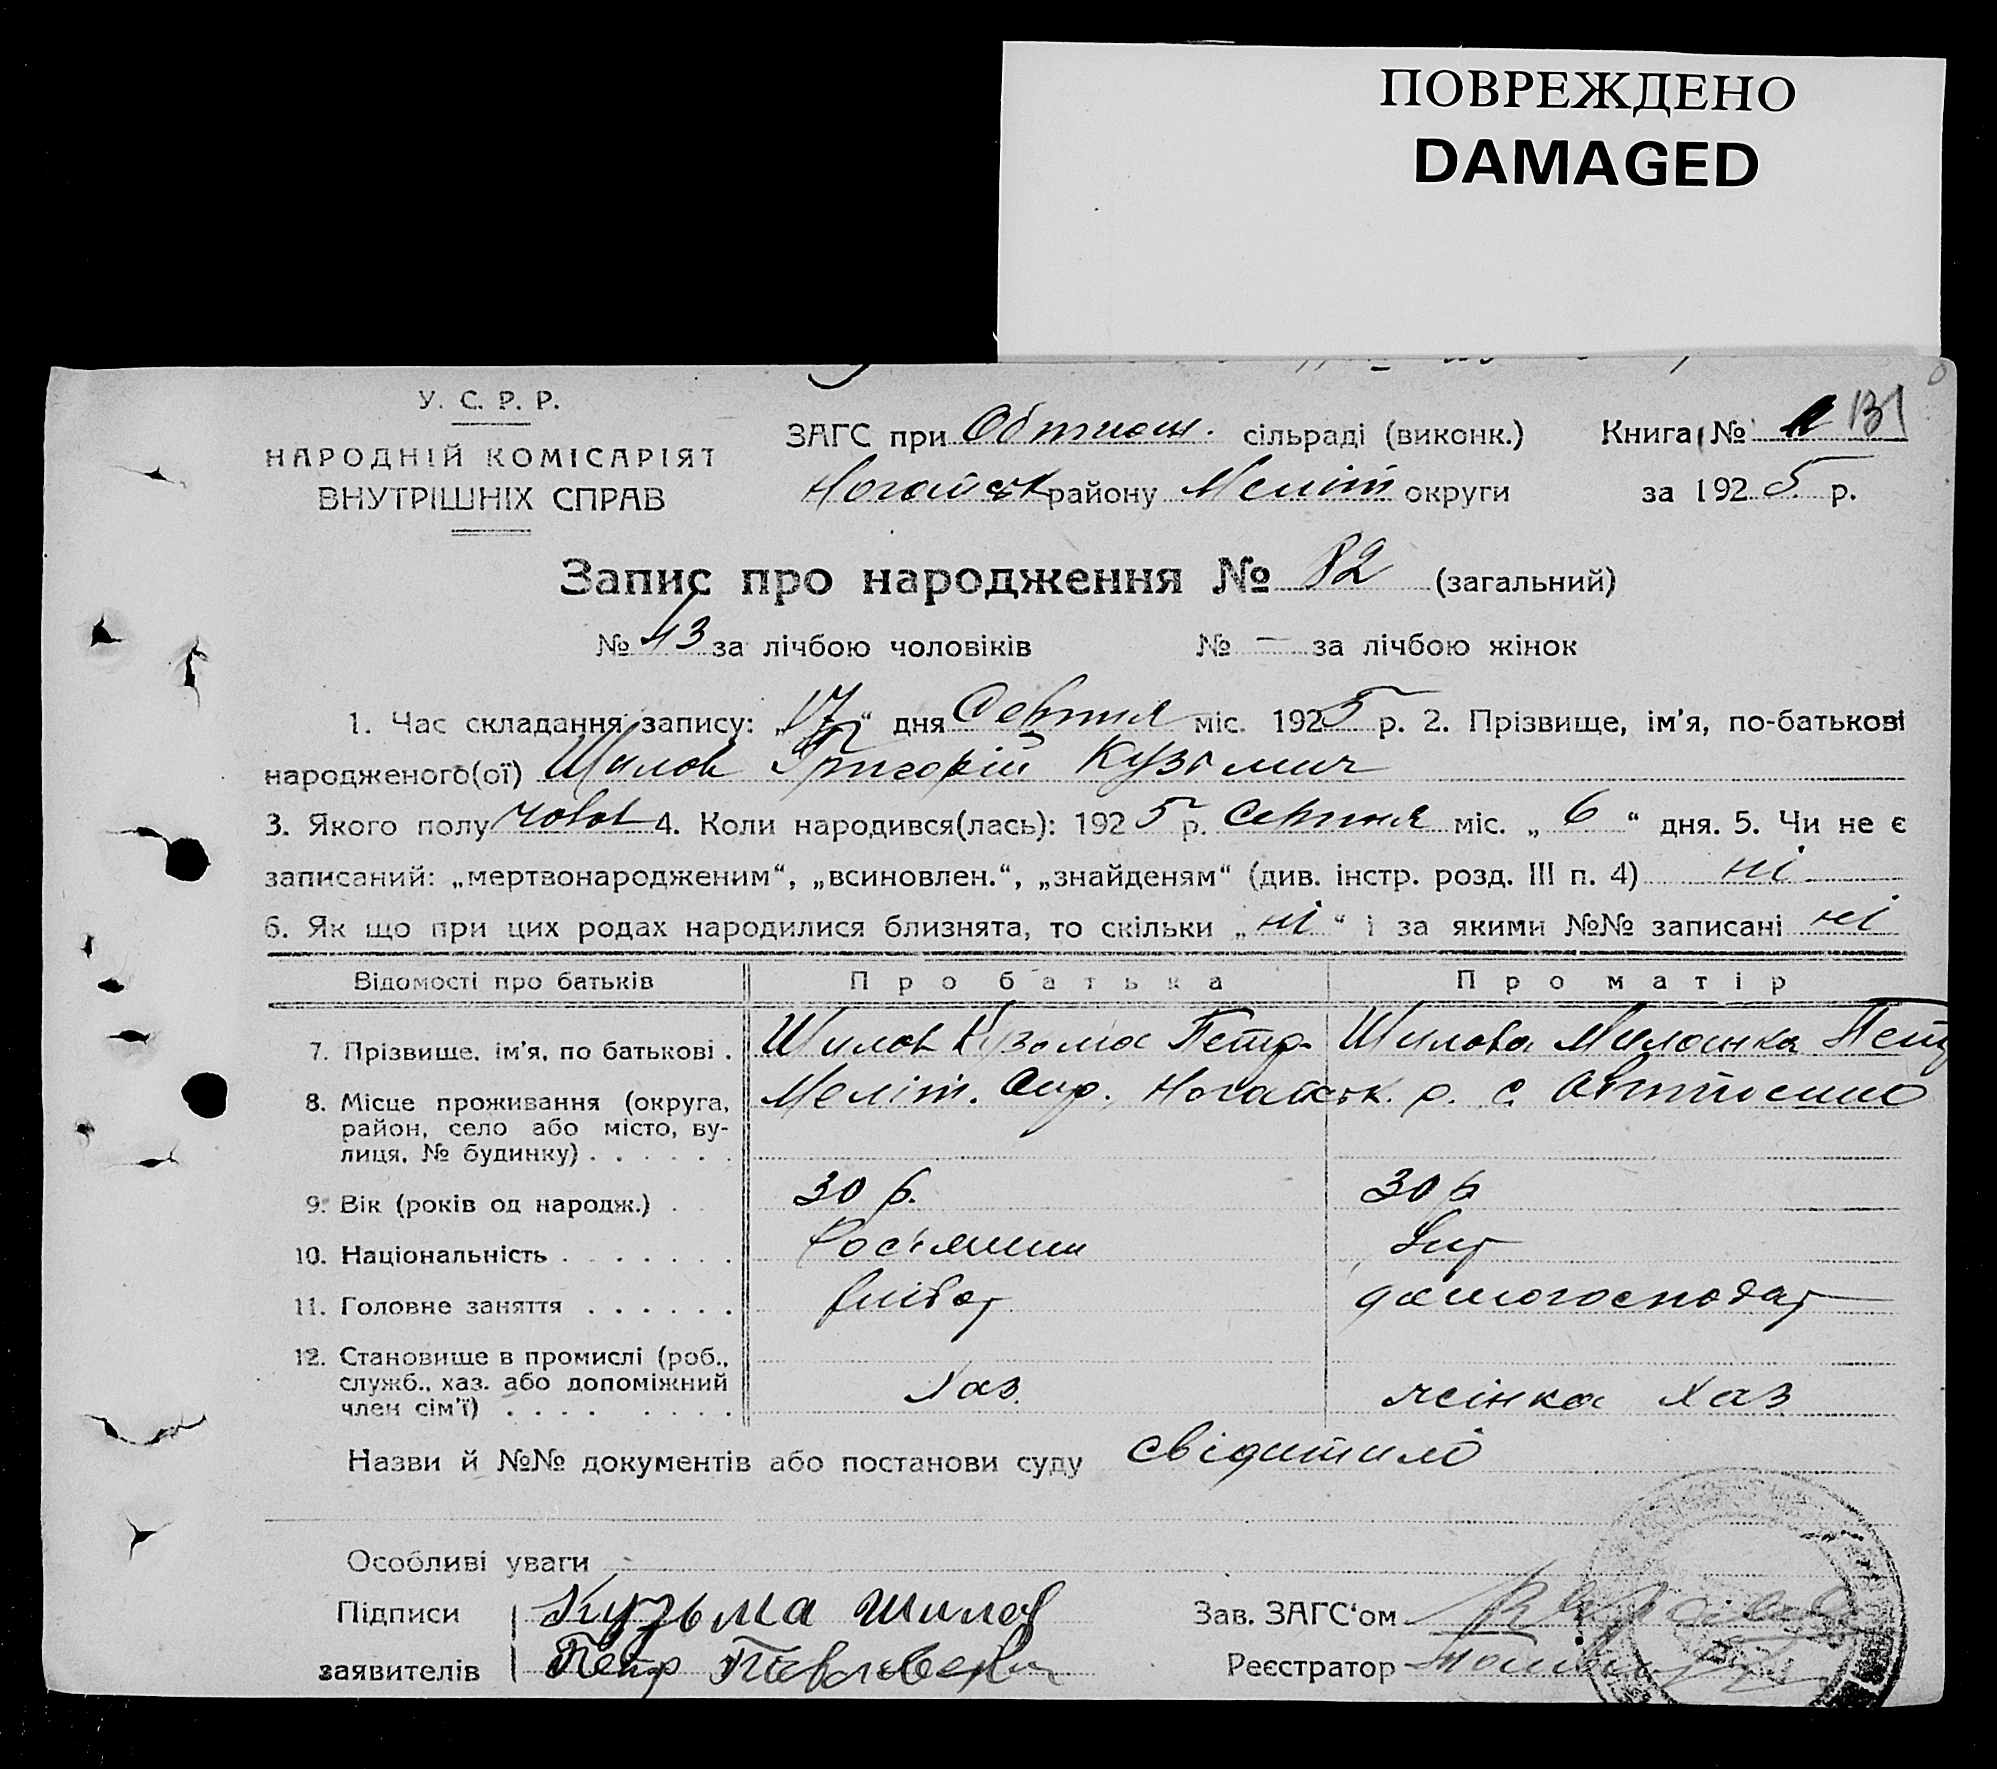 ПОВРЕЖДЕНО
DAMAGED
У. С. Р. Р.
НАРОДНІЙ КОМІСАРІЯТ
ВНУТРІШНІХ СПРАВ
ЗАГС при Обтичн. сільраді (виконк.)
Книга № 131
Ногайськ району Меліт округи
за 1925 р.
Запис про народження № 82 (загальний)
№ 43 за лічбою чоловіків № — за лічбою жінок
1. Час складання запису: „17“ дня Серпня міс. 1925 р. 2. Прізвище, ім'я, по-батькові
народженого(ої) Шилов Григорій Кузьмич
3. Якого полу чолов 4. Коли народився(лась): 1925 р. Серпня міс. „6“ дня. 5. Чи не є
записаний: „мертвонародженим“, „всиновлен.“, „знайденям“ (див. інстр. розд. III п. 4) ні
6. Як що при цих родах народилися близнята, то скільки „ні“ і за якими №№ записані ні
Відомості про батьків Про батька Про матір
7. Прізвище, ім'я, по батькові . Шилов Кузьма Петр. Шилова Миланка Петр
8. Місце проживання (округа, район, село або місто, вулиця, № будинку) . . . . . . Меліт. Окр. Ногайськ. р. с.
9. Вік (років од народж.) . . 30 р. 30 р
10. Національність . . . . . . . Росіянин Укр
11. Головне заняття . . . . . . хлібор домогосподар
12. Становище в промислі (роб., служб., хаз. або допоміжний член сім'ї) . . . . . . . . Хаз. жінка хаз
Назви й №№ документів або постанови суду
Особливі уваги
Підписи Кузьма шилов Зав. ЗАГС'ом
заявителів Петр Реєстратор